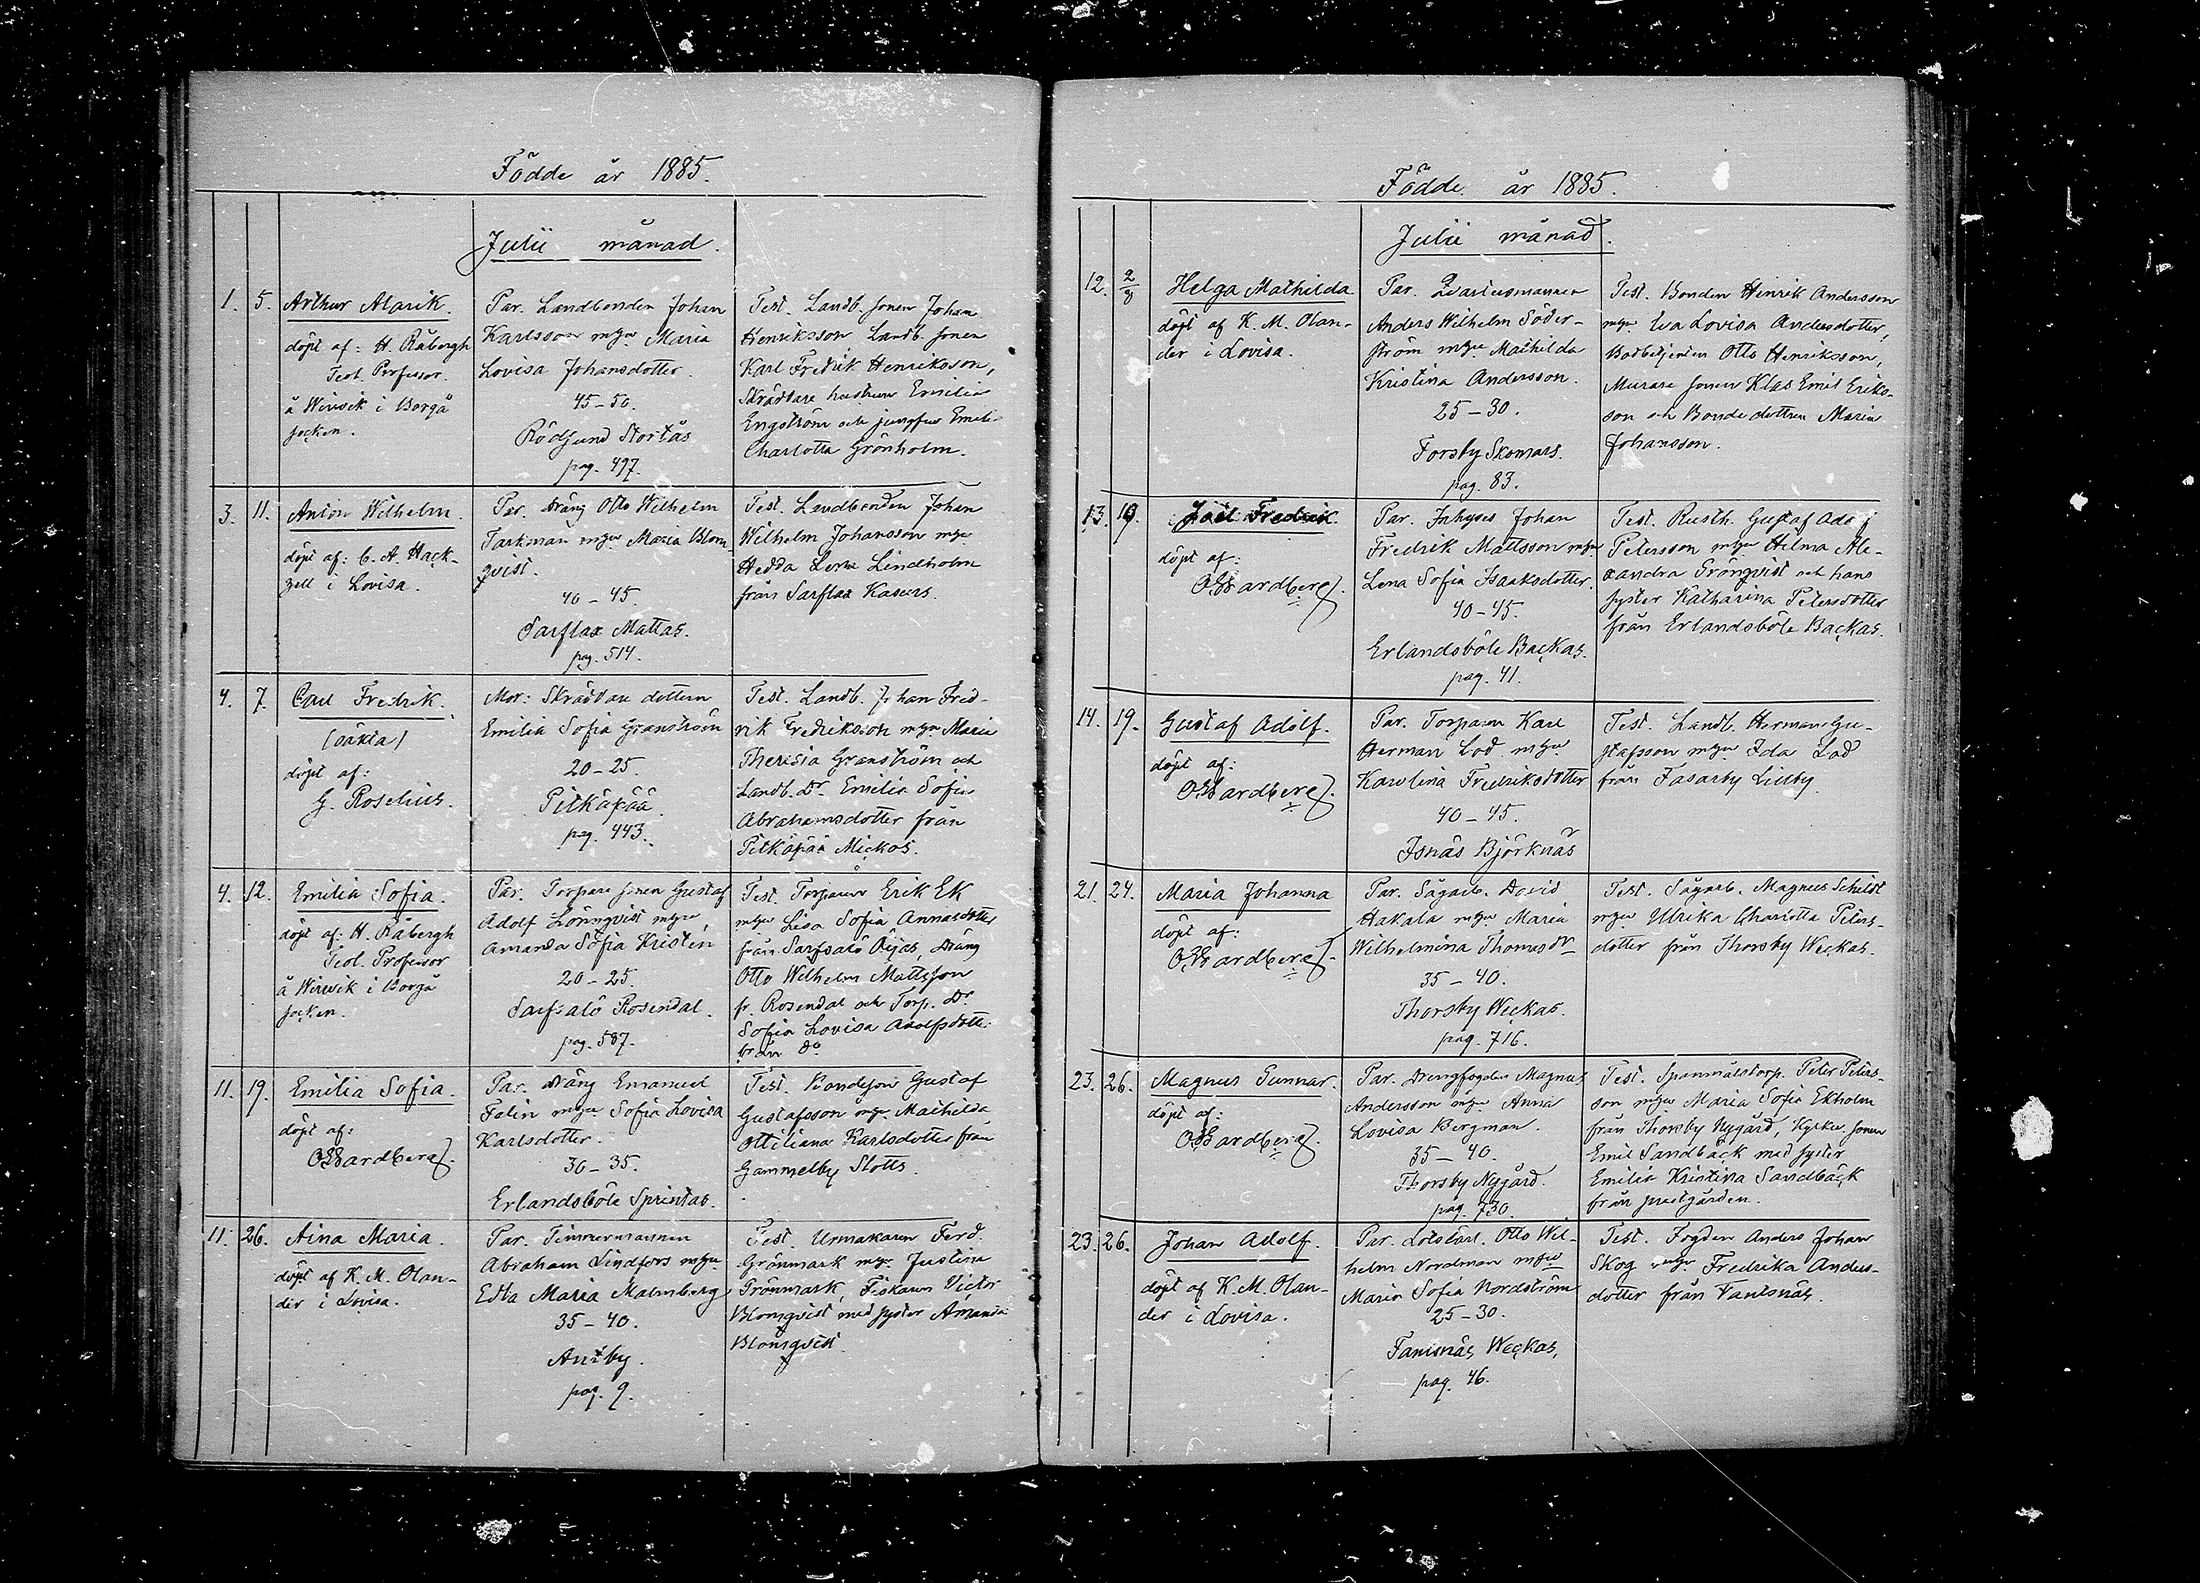 Födde år 1885.
Julii månad.
1. 5. Arthur Alarik.
döpt af: H. Råbergh
Teol. Professor.
å Wirwik i Borgå
socken.
Par. Landbonden Johan
Karlsson m hu Maria
Lovisa Johansdotter.
45-50.
Rödsund Storkås
pag. 497.
Test. Landb. sonen Johan
Henriksson Landb. sonen
Karl Fredrik Henriksson,
Skräddare hustrun Emilia
Engström och jungfru Emili
Charlotta Grönholm.
3. 11. Anton Wilhelm.
döpt af: C. A. Hack-
zell i Lovisa.
Par. dräng Otto Wilhelm
Tarkman m hu Maria Blom
qvist.
40-45.
Sarflax Mattas.
pag. 514.
Test. Landbonden Johan
Wilhelm Johansson m hu
Hedda Lindholm
från Sarflax Kasurs.
4. 7. Carl Fredrik.
(oäkta)
döpt af:
G. Roselius.
Mor: Skräddare dottern
Emilia Sofia Granström
20-25.
Pitkäpää
pag. 443.
Test. Landb. Johan Fred-
rik Fredriksson m hu Maria
Theresia Granström och
Landb. dr. Emilia Sofia
Abrahamsdotter från
Pitkäpää Mickos.
4. 12. Emilia Sofia.
döpt af: H. Råbergh
Teol. Professor
å Wirwik i Borgå
socken.
Par. Torpare sonen Gustaf
Adolf Lönnqvist m hu
Amanda Sofia Kristen
20-25.
Sarfsalö Rosendal.
pag. 587.
Test. Torparen Erik Ek
m hu Lisa Sofia Annasdotter
från Sarfsalö Öijas, dräng
Otto Wilhelm Mattsson
fr. Rosendal och Torp. dr
Sofia Lovisa Adolfsdotte.
från do.
11. 19. Emilia Sofia.
döpt af:
O. Wardberg.
Par. dräng Emanuel
Falin m hu Sofia Lovisa
Karlsdotter.
30-35.
Erlandsböle Sprintas.
Test. Bondeson Gustaf
Gustafsson m hu Mathilda
Ottiliana Karlsdotter från
Gammelby Slotts.
11. 26. Aina Maria.
döpt af K. M. Olan-
der i Lovisa.
Par. Timmermannen
Abraham Lindfors m hu
Edla Maria Malmberg
35-40.
Antby.
pag. 9.
Test. Urmakaren Ferd.
Grönmark m hu Justina
Grönmark, Fiskaren Victor
Blomqvist med syster Amanda
Blomqvist.
Födde år 1885.
Julii månad.
12. 2/8 Helga Mathilda
döpt af K. M. Olan-
der i Lovisa.
Par. Qvartersmannen
Anders Wilhelm Söder-
ström m hu Mathilda
Kristina Andersson.
25-30.
Forsby Skomars.
pag. 83.
Test. Bonden Henrik Andersson
m hu Eva Lovisa Andersdotter,
Bodbetjenten Otto Henriksson,
Murare sonen Klas Emil Eriks-
son och Bonde dottren Maria
Johansson.
13. 19. Joel Fredrik.
döpt af:
O. Wardberg.
Par. Inhyses Johan
Fredrik Mattsson m hu
Lena Sofia Isaaksdotter
40-45.
Erlandsböle Backas.
pag. 41.
Test. Rusth. Gustaf Adolf
Petersson m hu Hilma Ale-
xandra Grönqvist och hans
syster Katharina Petersdotter
från Erlandsböle Backas.
14. 19. Gustaf Adolf.
döpt af:
O. Wardberg.
Par. Torparen Karl
Herman Lod m hu
Karolina Fredriksdotter
40-45.
Isnäs Björknäs
Test. Landb. Herman Gu-
stafsson m hu Ida Lod
från Fasarby Lillby.
21. 24. Maria Johanna
döpt af:
O. Wardberg.
Par. Sågarb. David
Hakala m hu Maria
Wilhelmina Thomasdr
35-40.
Thorsby Weckas.
pag. 716.
Test. Sågarb. Magnus Schildt
m hu Ulrika Charlotta Peters-
dotter från Thorsby Weckas.
23. 26. Magnus Gunnar.
döpt af:
O. Wardberg.
Par. Drengfogden Magnus
Andersson m hu Anna
Lovisa Bergman.
35-40.
Thorsby Nygård.
pag. 730.
Test. Spanmålstorp. Peter Peters-
son m hu Maria Sofia Ekholm
från Thorsby Nygård, Kyrkv. sonen
Emil Sandbäck med syster
Emilia Kristina Sandbäck
från prestgården.
23. 26. Johan Adolf.
döpt af K. M. Olan-
der i Lovisa.
Par. Lotslärl. Otto Wil-
helm Nordman m hu
Maria Sofia Nordström
25-30.
Tansnäs Weckas,
pag. 46.
Test. Fogden Anders Johan
Skog m hu Fredrika Anders-
dotter från Tansnäs.